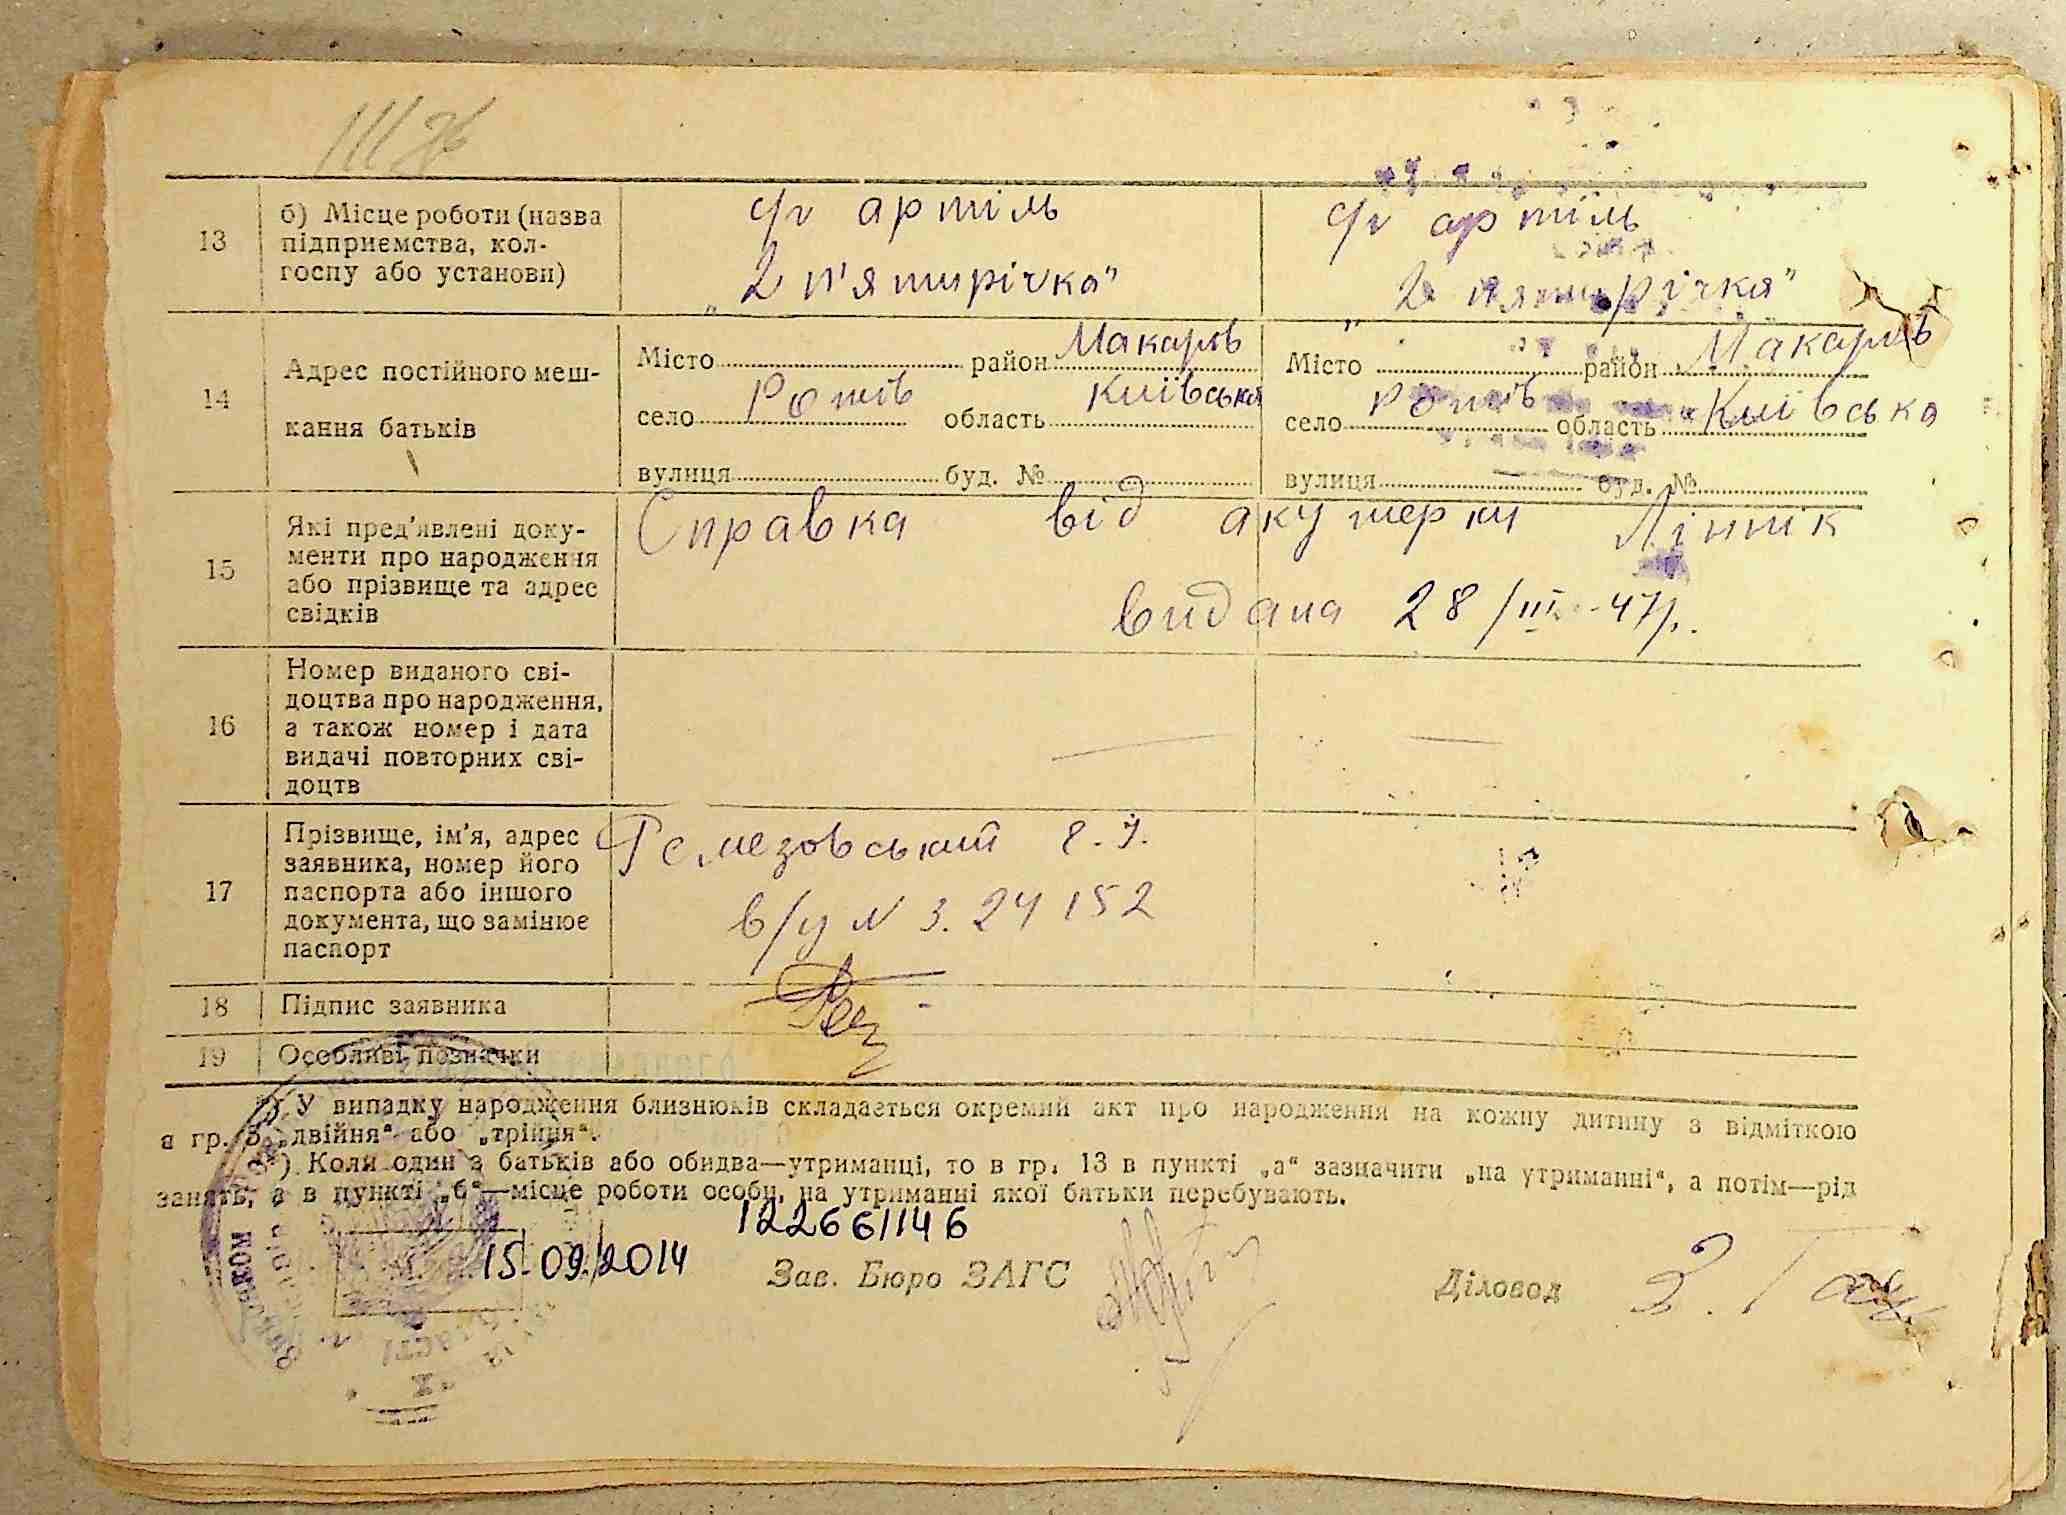 13
б) Місце роботи (назва
підприємства, кол-
госпу або установи)
с/г артіль
„2 п'ятирічка"
с/г артіль
„2 пятирічка"
14
Адрес постійного меш-
кання батьків
Місто район Макарів
село Ротів область Київська
вулиця буд. №
Місто район Макарів
село Ротів область Київська
вулиця буд. №
15
Які пред'явлені доку-
менти про народження
або прізвище та адрес
свідків
Справка від акушеркиЛіннік
видана 28/III-47р.
16
Номер виданого сві-
доцтва про народження,
а також номер і дата
видачі повторних сві-
доцтв
17
Прізвище, ім'я, адрес
заявника, номер його
паспорта або іншого
документа, що замінює
паспорт
Ремезовський
в/у № 3.24152
18
Підпис заявника
19
Особливі позначки
*) У випадку народження близнюків складається окремий акт про народження на кожну дитину з відміткою
в гр. 3 „двійня" або „трійня".
) Коли один з батьків або обидва—утриманці, то в гр. 13 в пункті „а" зазначити „на утриманні", а потім—рід
занять, а в пункті „б"—місце роботи особи, на утриманні якої батьки перебувають.
12266/146
15.09.2014
Зав. Бюро ЗАГС
Діловод